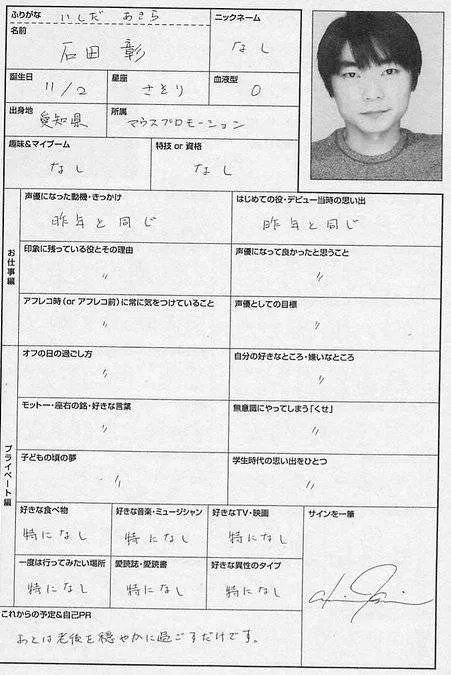 ふりがな いしだ あきら
ニックネーム
名前
石田 彰
なし
誕生日 11/2
星座 さそり
血液型 O
出身地 愛知県
所属 マウスプロモーション
趣味&マイブーム
なし
特技 or 資格
なし
お仕事編
声優になった動機・きっかけ
昨年と同じ
はじめての役・デビュー当時の思い出
昨年と同じ
印象に残っている役とその理由
〃
声優になって良かったと思うこと
〃
アフレコ時(or アフレコ前)に常に気をつけていること
〃
声優としての目標
〃
プライベート編
オフの日の過ごし方
〃
自分の好きなところ・嫌いなところ
〃
モットー・座右の銘・好きな言葉
〃
無意識にやってしまう「くせ」
〃
子どもの頃の夢
〃
学生時代の思い出をひとつ
〃
好きな食べ物
特になし
好きな音楽・ミュージシャン
特になし
好きなTV・映画
特になし
サインを一筆
一度は行ってみたい場所
特になし
愛読誌・愛読書
特になし
好きな異性のタイプ
特になし
これからの予定&自己PR
あとは老後を穏やかに過ごすだけです。